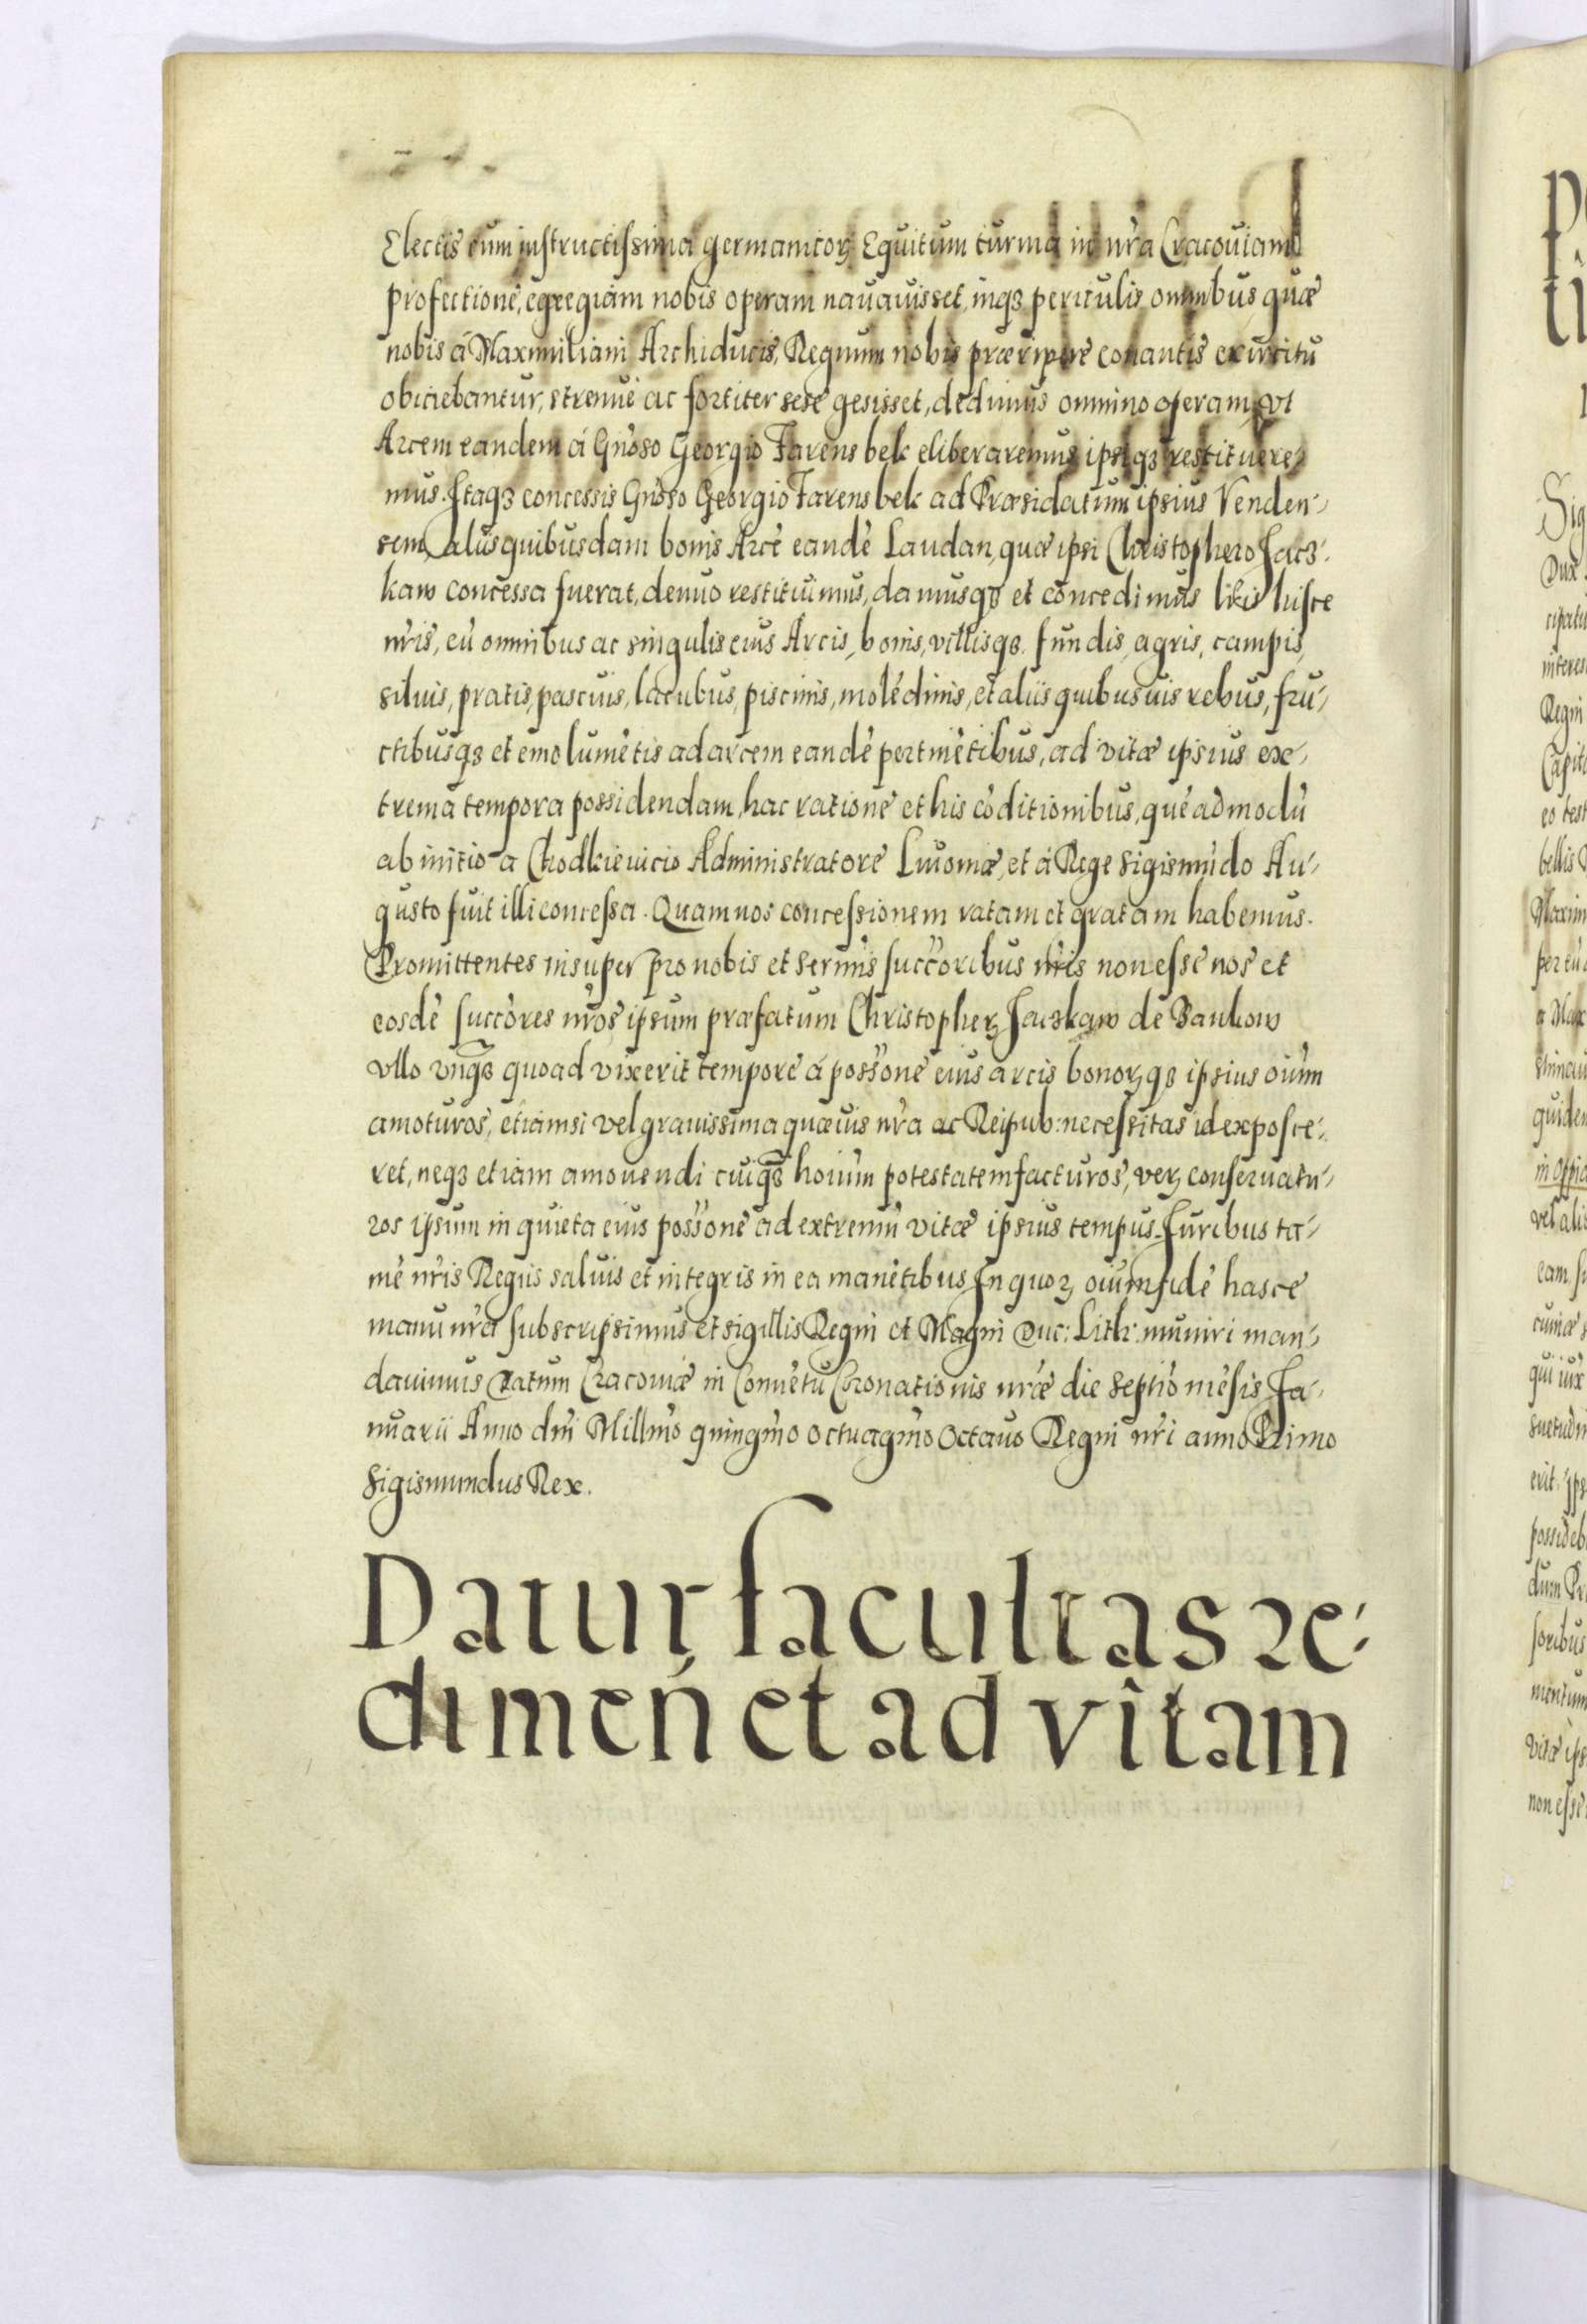 Electis cum instructissima germanicorȝ Equitum turma in nr̃a Cracouiam
profectionẽ, egregiam nobis operam nauauisset, inqȝ periculis omnibus, quæ
nobis á Maxmiliani Archiducis, Regnum nobis præripere conantis exercitu
obiciebantur, strenuè ac fortiter sese gesisset, dedimus omnino operam, vt
Arcem eandem á Gñoso Georgio Farensbek eliberaremus, ipsiqȝ restituere-
mus. Itaqȝ concessis Gñoso Georgio Farensbek ad Præsidatum ipsius Venden-
sem, alijs quibusdam bonis Arcẽ eandẽ Laudan, quæ ipsi Christophero Jacȝ-
kaw concessa fuerat, denuo restituimus, damusqȝ et concedimus l̃ris hisce
nr̃is, cũ omnibus ac singulis eius Arcis, bonis, villisqȝ. fundis, agris, campis,
siluis, pratis, pascuis, lacubus, piscinis, molẽdinis, et aliis quibusuis rebus, fru-
ctibusqȝ et emolumẽtis ad arcem eandẽ pertinẽtibus, ad vitæ ipsius ex-
trema tempora possidendam, hac ratione et his cõditionibus, quẽadmodũ
ab initio a Chodkieuicio Administratore Liuoniæ, et á Rege Sigismũdo Au-
gusto fuit illi concessa. Quam nos concessionem ratam et gratam habemus.
Promittentes insuper pro nobis et Serm̃is succ̃oribus nr̃is non esse nos et
eosdẽ succ̃ores nr̃os ipsum præfatum Christopherȝ Jacskaw de Bankow
vllo vnqȝ quoad vixerit tempore á poss̃one eius arcis bonorȝqȝ ipsius oiũm
amoturos, etiamsi vel grauissima quæuis nr̃a ac Reipub: necessitas id exposce-
ret, neqȝ etiam amouendi cuiqȝ hoĩum potestatem facturos, verȝ conseruatu-
ros ipsum in quieta eius poss̃one ad extremũ vitæ ipsius tempus. Iuribus ta-
mẽ nr̃is Regiis saluis et integris in ea manẽtibus In quorȝ oiũm fidẽ hasce
manu nr̃a subscripsimus et sigillis Regni et Magni Duc: Lith: muniri man-
dauimus Datum Cracouiæ in Conuẽtu Coronationis nr̃æ die septĩo mẽsis Ja-
nuarii Anno dñi Millm̃o quingm̃o octuagm̃o Octauo Regni nr̃i anno Primo
Sigismundus Rex.
Datur facultas re-
dimeñ et ad vitam